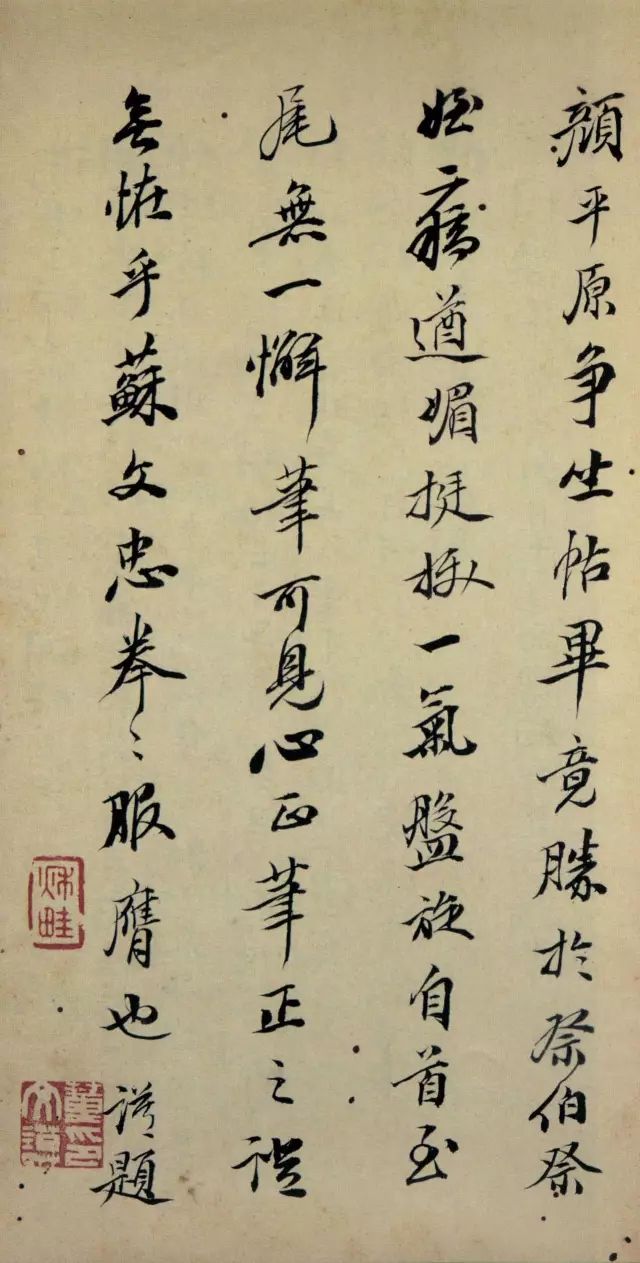 顏平原争坐帖畢竟勝於祭伯祭
姪二藳遒媚挺拔一氣盤旋自首至
尾無一懈筆可見心正筆正之
無恠乎蘇文忠拳〻服膺也 題